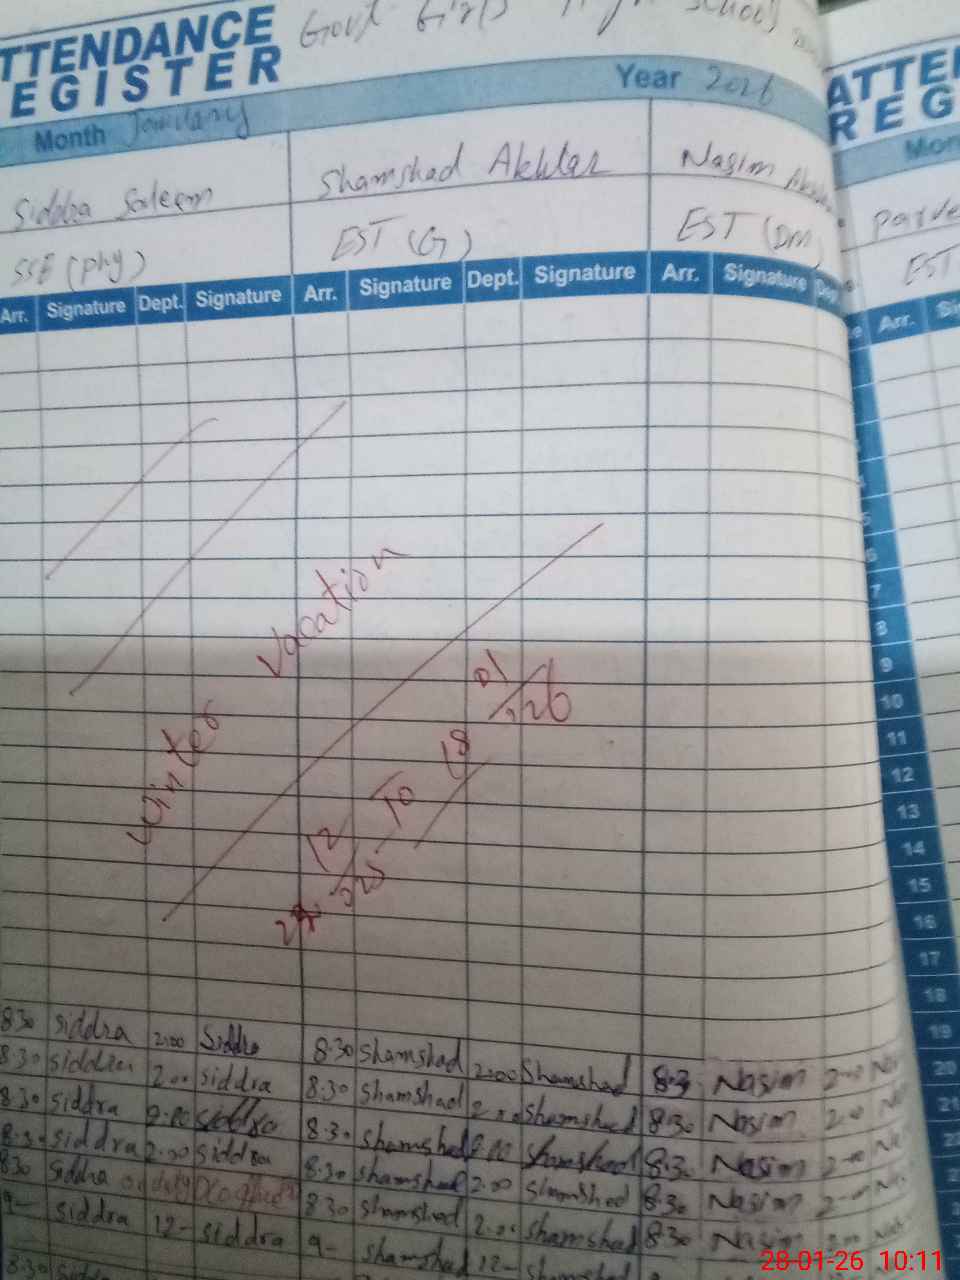 Govt Girls High School
ATTENDANCE REGISTER
Month January Year 2026
Siddra Saleem Shamshad Akhtar Nasim
SSE (phy) EST (G) EST (DM)
Arr. Signature Dept. Signature Arr. Signature Dept. Signature Arr. Signature
Winter Vacation
12 2025 To 18 01 2026
8:30 Siddra 2:00 Siddra 8:30 Shamshad 2:00 Shamshad 8:3 Nasim 2-00
8:30 Siddra 2:00 Siddra 8:30 Shamshad 2:00 Shamshad 8:30 Nasim 2-00
8:30 Siddra 2:00 Siddra 8:30 Shamshad 2:00 Shamshad 8:30 Nasim 2-00
8:30 Siddra 2:00 Siddra 8:30 Shamshad 2:00 Shamshad 8:30 Nasim 2-00
8:30 Siddra on duty 8:30 Shamshad 2:00 Shamshad 8:30 Nasim
9- Siddra 12- Siddra 9- Shamshad 12- Shamshad
8:30 Siddra
ATTE
REG
Mon
Parve
EST
Arr. Si
5
6
7
8
9
10
11
12
13
14
15
16
17
18
19
20
21
28-01-26 10:11